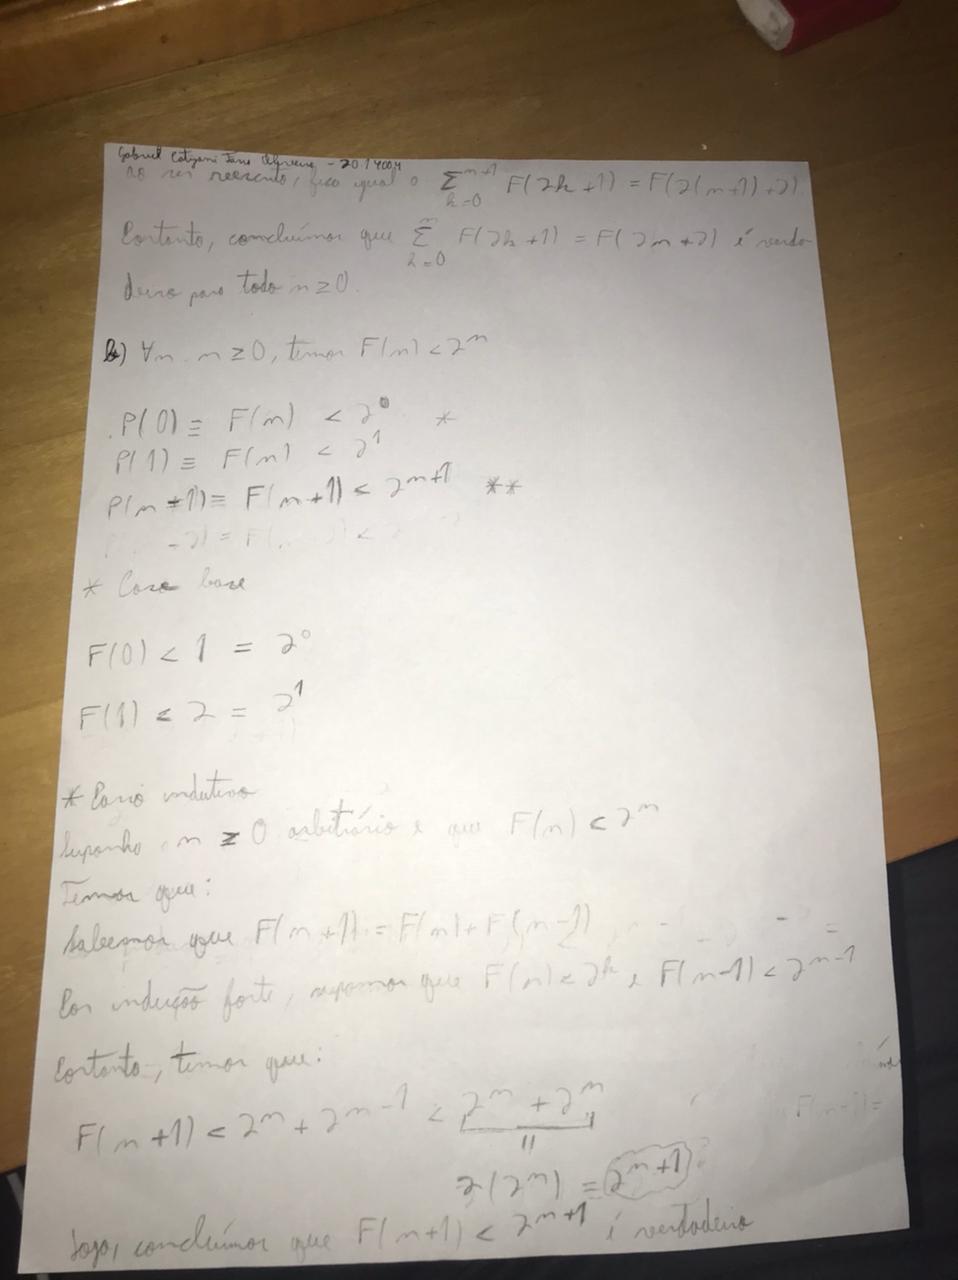 Gabriel
ao ser reescrito, fica igual a Σ_{k=0}^{n+1} F(2k+1) = F(2(n+1)+2)
Portanto, concluímos que Σ_{k=0}^{n} F(2k+1) = F(2n+2) é verda
deiro para todo n ≥ 0.
b) ∀n. n ≥ 0, temos F(n) < 2^n
P(0) ≡ F(n) < 2^0 *
P(1) ≡ F(n) < 2^1
P(n+1) ≡ F(n+1) < 2^{n+1} **
* Caso base
F(0) < 1 = 2^0
F(1) < 2 = 2^1
* Caso indutivo
Suponha n ≥ 0 arbitrário e que F(n) < 2^n
Temos que:
Sabemos que F(n+1) = F(n) + F(n-1)
Por indução forte, supomos que F(n) < 2^k e F(n-1) < 2^{n-1}
Portanto, temos que:
F(n+1) < 2^n + 2^{n-1} < 2^n + 2^n
=
2(2^n) = 2^{n+1}
Logo, concluímos que F(n+1) < 2^{n+1} é verdadeiro